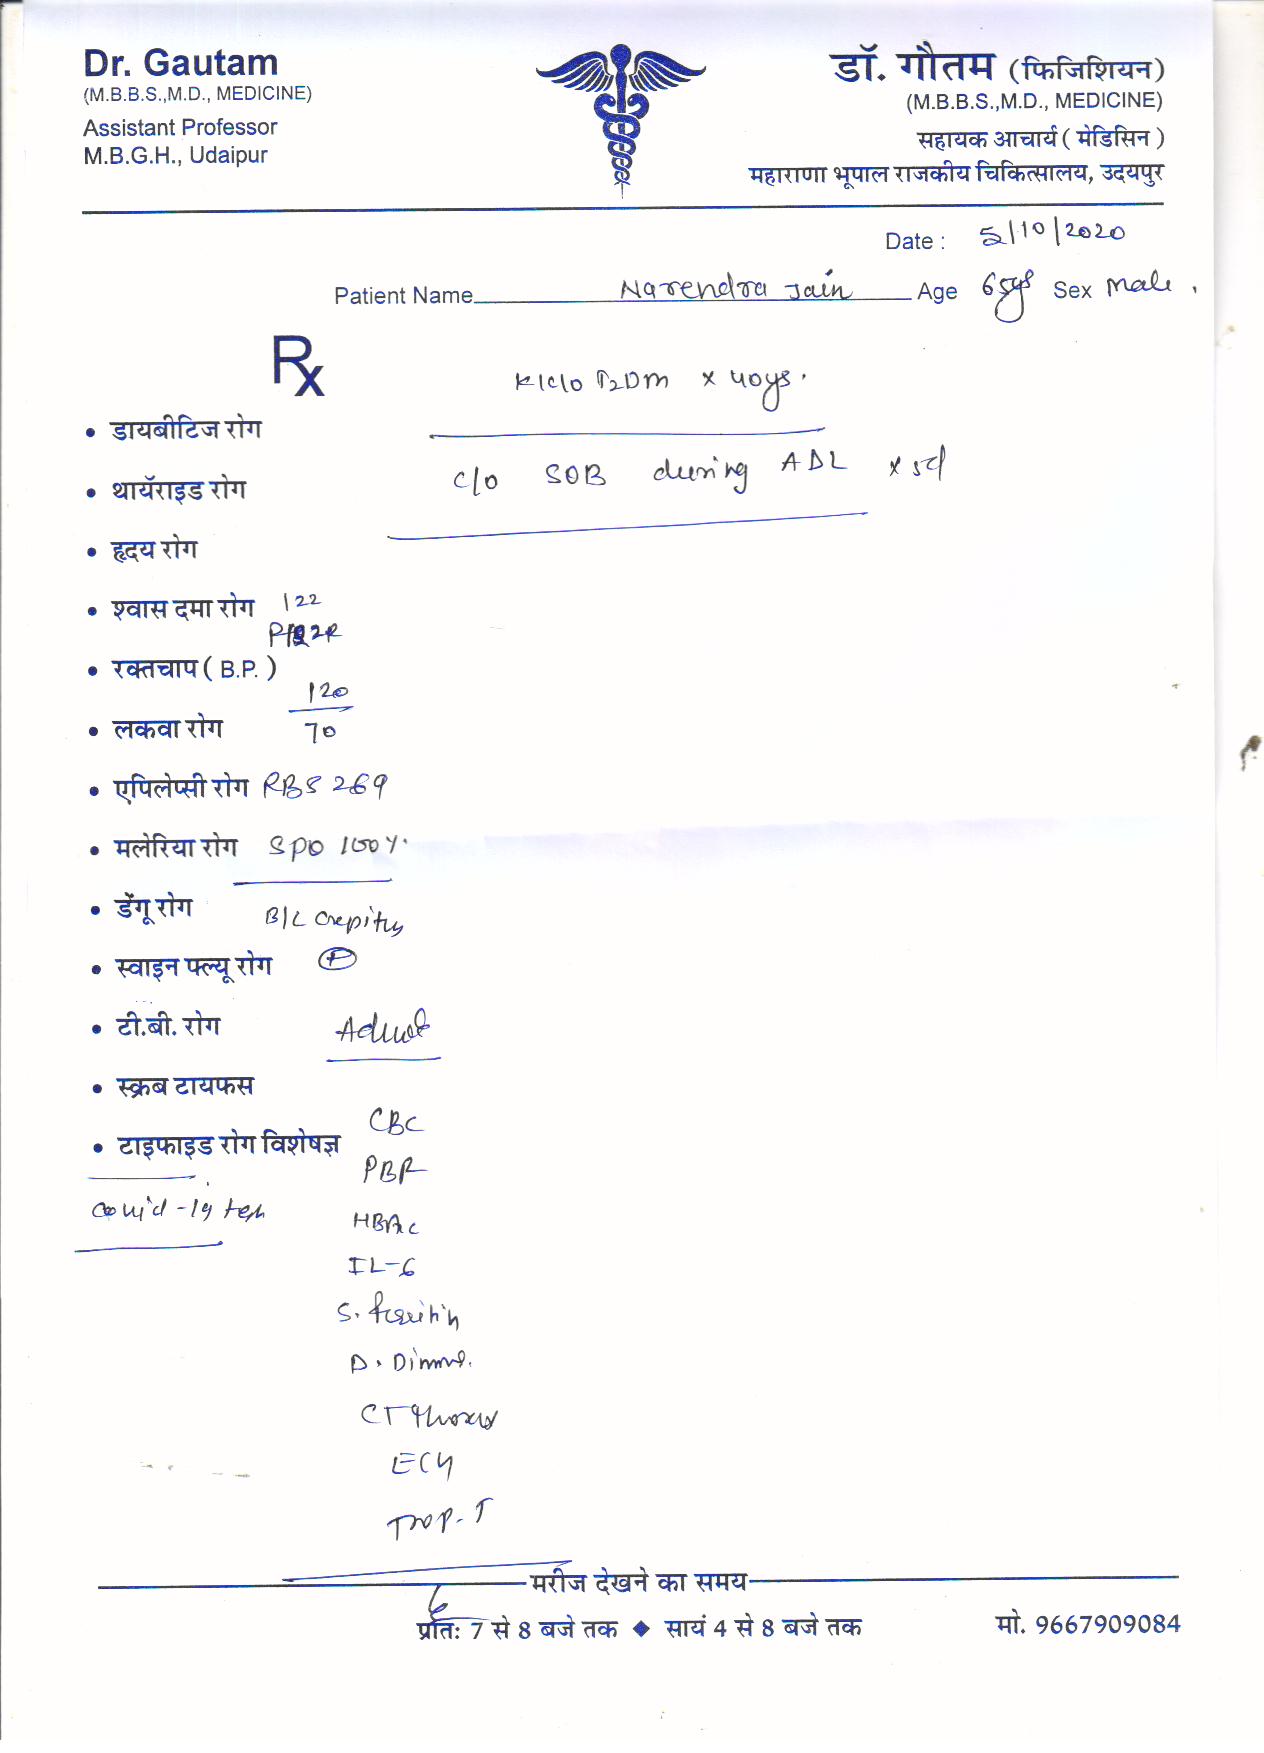 Dr. Gautam
(M.B.B.S.,M.D., MEDICINE)
Assistant Professor
M.B.G.H., Udaipur
डॉ. गौतम (फिजिशियन)
(M.B.B.S.,M.D., MEDICINE)
सहायक आचार्य ( मेडिसिन )
महाराणा भूपाल राजकीय चिकित्सालय, उदयपुर
Date : 5/10/2020
Patient Name Narendra Jain Age 65ys Sex Male
Rx
K/c/o T2DM x 40ys.
• डायबीटिज रोग
c/o SOB during ADL x 5d
• थायॅराइड रोग
• हृदय रोग
• श्वास दमा रोग 122
• रक्तचाप ( B.P. )
120
70
• लकवा रोग
• एपिलेप्सी रोग RBS 269
• मलेरिया रोग SPO 100%
• डेंगू रोग
B/L crepitus
• स्वाइन फ्ल्यू रोग +
• टी.बी. रोग
Admit
• स्क्रब टायफस
CBC
• टाइफाइड रोग विशेषज्ञ
PBF
Covid-19 test
HBA1c
IL-6
S. Ferritin
D. Dimer
CT thorax
ECG
Trop-T
मरीज देखने का समय
प्रातः 7 से 8 बजे तक ◆ सायं 4 से 8 बजे तक मो. 9667909084